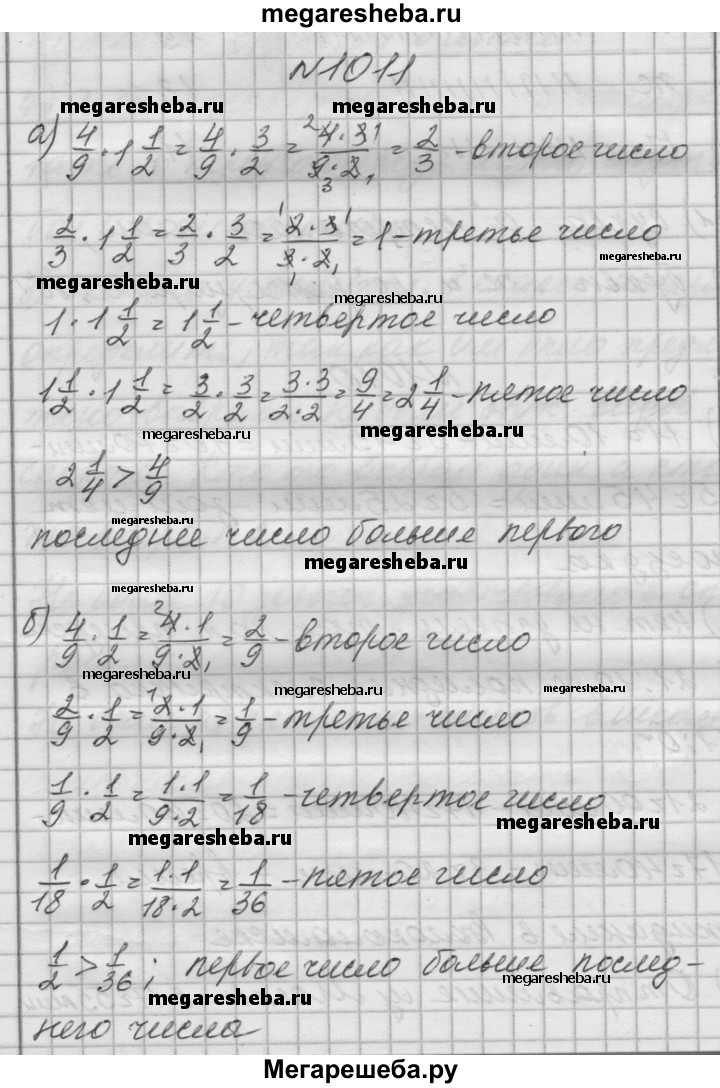 megaresheba.ru
№1011
megaresheba.ru megaresheba.ru
а) 4/9 · 1 1/2 = 4/9 · 3/2 = 4·3/9·2 = 2/3 - второе число
2/3 · 1 1/2 = 2/3 · 3/2 = 2·3/3·2 = 1 - третье число
megaresheba.ru
megaresheba.ru
megaresheba.ru
1 · 1 1/2 = 1 1/2 - четвертое число
1 1/2 · 1 1/2 = 3/2 · 3/2 = 3·3/2·2 = 9/4 = 2 1/4 - пятое число
megaresheba.ru megaresheba.ru
2 1/4 > 4/9
megaresheba.ru
последнее число больше первого
megaresheba.ru
megaresheba.ru
б) 4/9 · 1/2 = 4·1/9·2 = 2/9 - второе число
megaresheba.ru megaresheba.ru megaresheba.ru
2/9 · 1/2 = 2·1/9·2 = 1/9 - третье число
1/9 · 1/2 = 1·1/9·2 = 1/18 - четвертое число
megaresheba.ru megaresheba.ru
1/18 · 1/2 = 1·1/18·2 = 1/36 - пятое число
1/2 > 1/36; первое число больше послед-
megaresheba.ru megaresheba.ru
него числа
Мегарешеба.ру